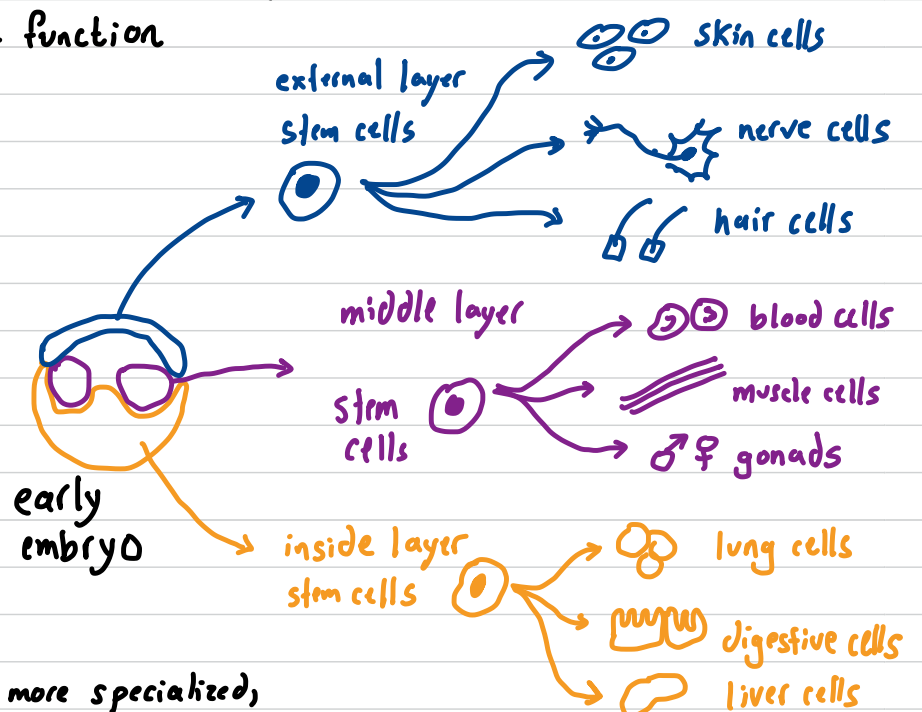 function
external layer
stem cells
skin cells
nerve cells
hair cells
middle layer
stem
cells
blood cells
muscle cells
gonads
early
embryo
inside layer
stem cells
lung cells
digestive cells
liver cells
more specialized,